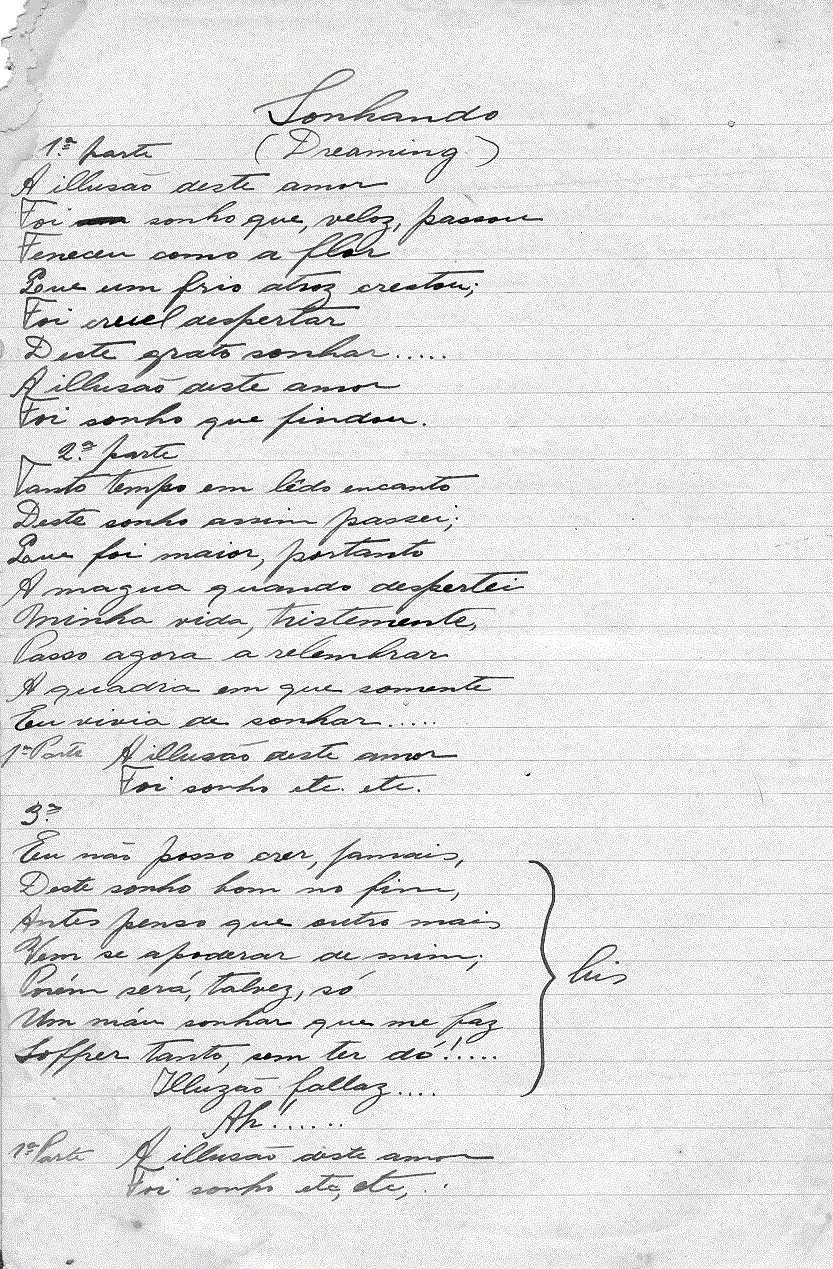 Sonhando
1ª parte (Dreaming)
A illusão deste amor
Foi sonho que, veloz, passou
Feneceu como a flor
Que um frio atroz crestou;
Foi cruel despertar
Deste grato sonhar.....
A illusão deste amor
Foi sonho que findou.
2ª parte
Tanto tempo em lêdo encanto
Deste sonho assim passei;
Que foi maior, portanto
A magua quando despertei
Minha vida, tristemente,
Passo agora a relembrar
A quadra em que somente
Eu vivia de sonhar.....
1ª Parte A illusão deste amor
Foi sonho etc. etc.
3ª
Eu não posso crer, jamais,
Deste sonho bom no fim,
Antes penso que outro mais
Vem se apoderar de mim;
Porém será, talvez, só
Um máu sonhar que me faz
Soffrer tanto, sem ter dó!.....
Illuzão fallaz....
bis
Ah!.....
1ª Parte A illusão deste amor
Foi sonho etc, etc, ..